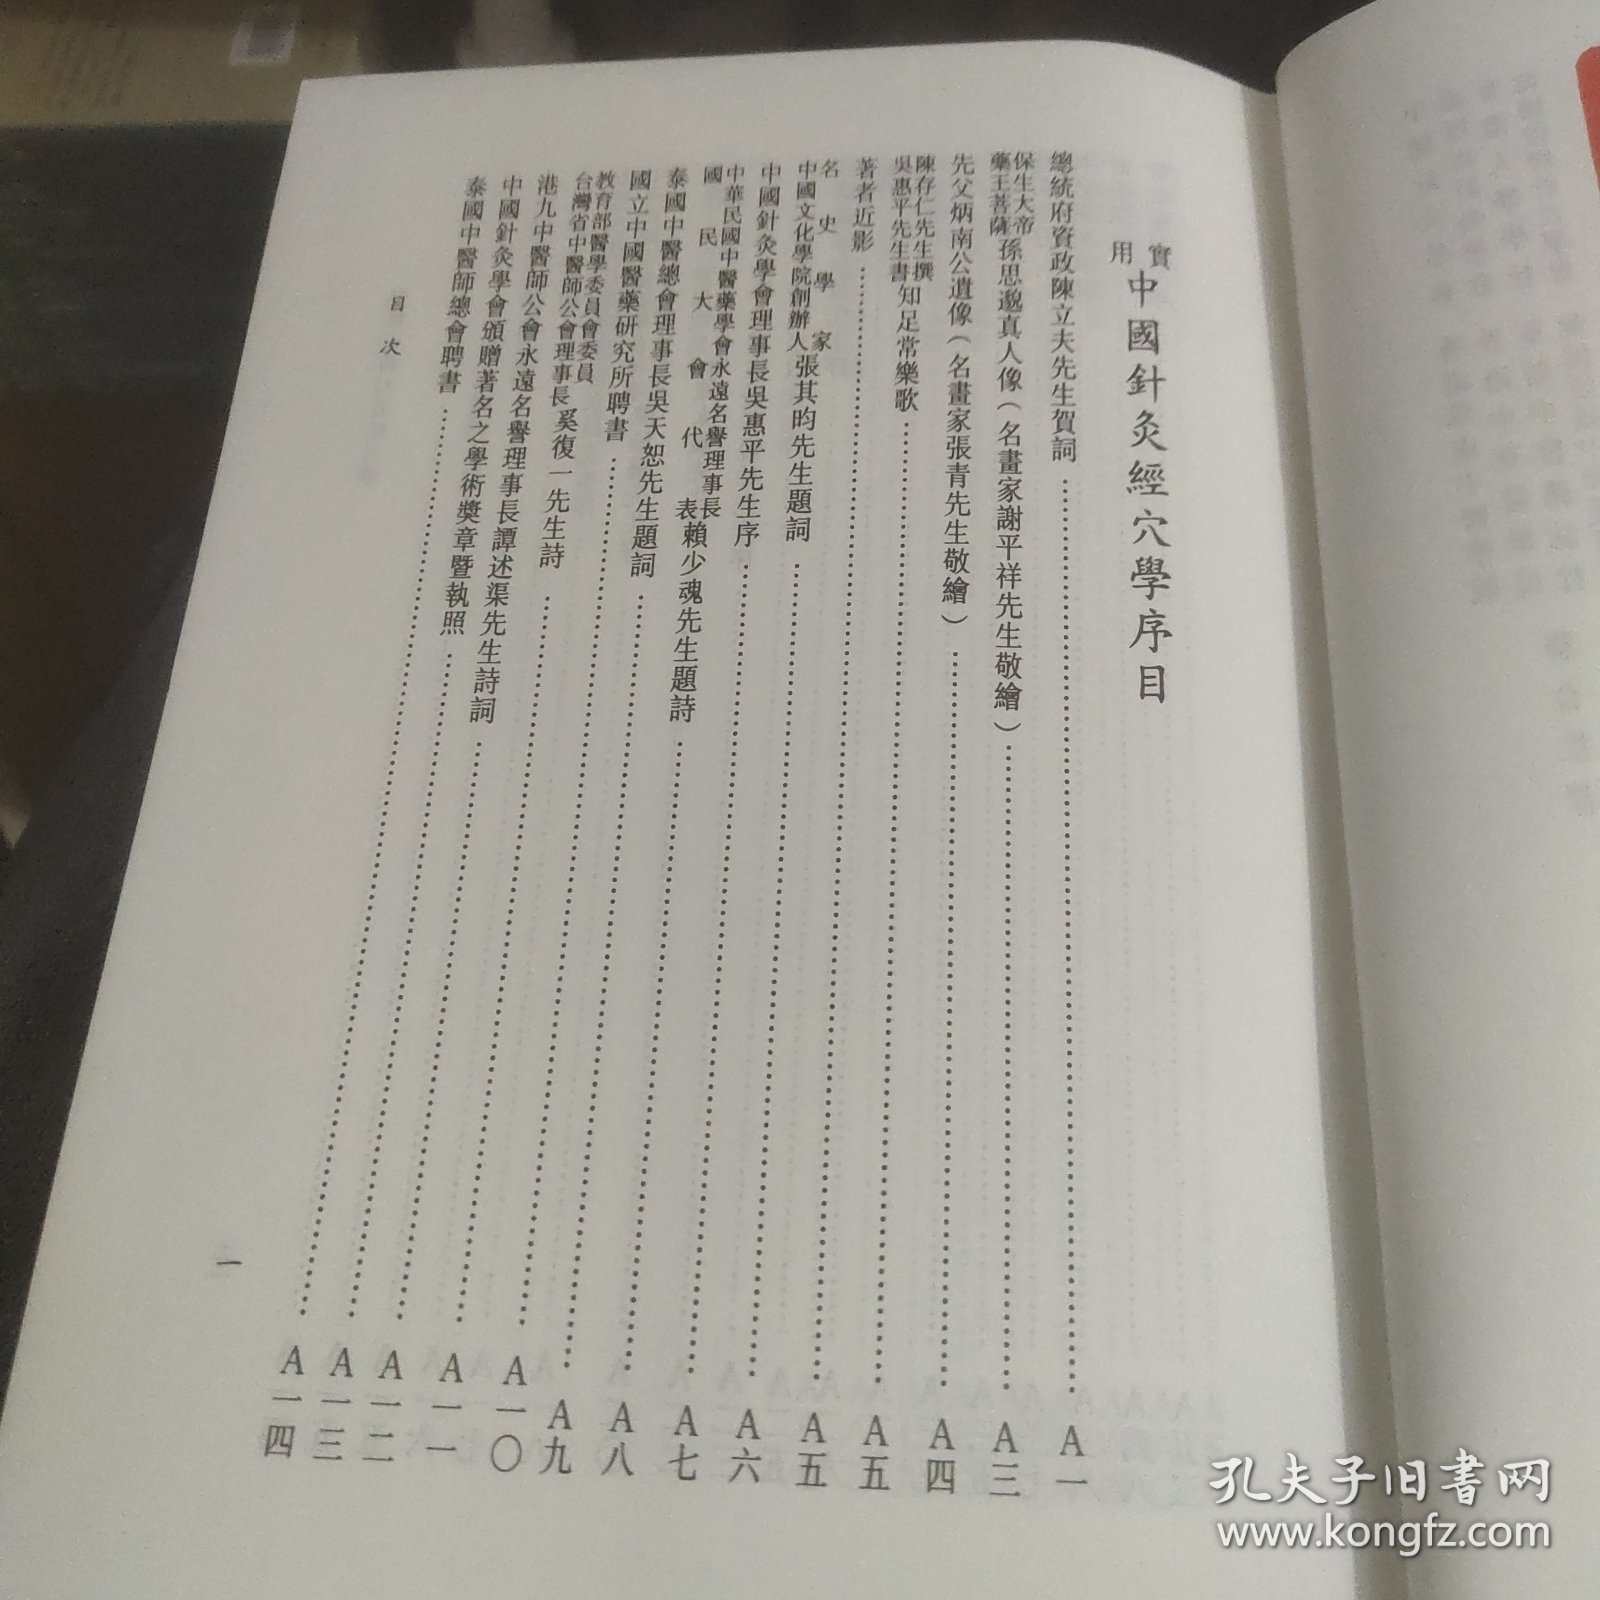 實用中國針灸經穴學序目
總統府資政陳立夫先生賀詞………A一
保生大帝
藥王菩薩孫思邈真人像(名畫家謝平祥先生敬繪)………A三
先父炳南公遺像(名畫家張青先生敬繪)………A四
陳存仁先生撰
吳惠平先生書知足常樂歌………A五
著者近影………A五
名史學家
中國文化學院創辦人張其昀先生題詞………A六
中國針灸學會理事長吳惠平先生序………A七
中華民國中醫藥學會永遠名譽理事長
國民大會代表賴少魂先生題詩………A八
泰國中醫總會理事長吳天恕先生題詞………A九
國立中國醫藥研究所聘書………A一〇
教育部醫學委員會委員
台灣省中醫師公會理事長奚復一先生詩………A一一
港九中醫師公會永遠名譽理事長譚述渠先生詩詞………A一二
中國針灸學會頒贈著名之學術獎章暨執照………A一三
泰國中醫師總會聘書………A一四
目次
一
孔夫子旧书网
www.kongfz.com